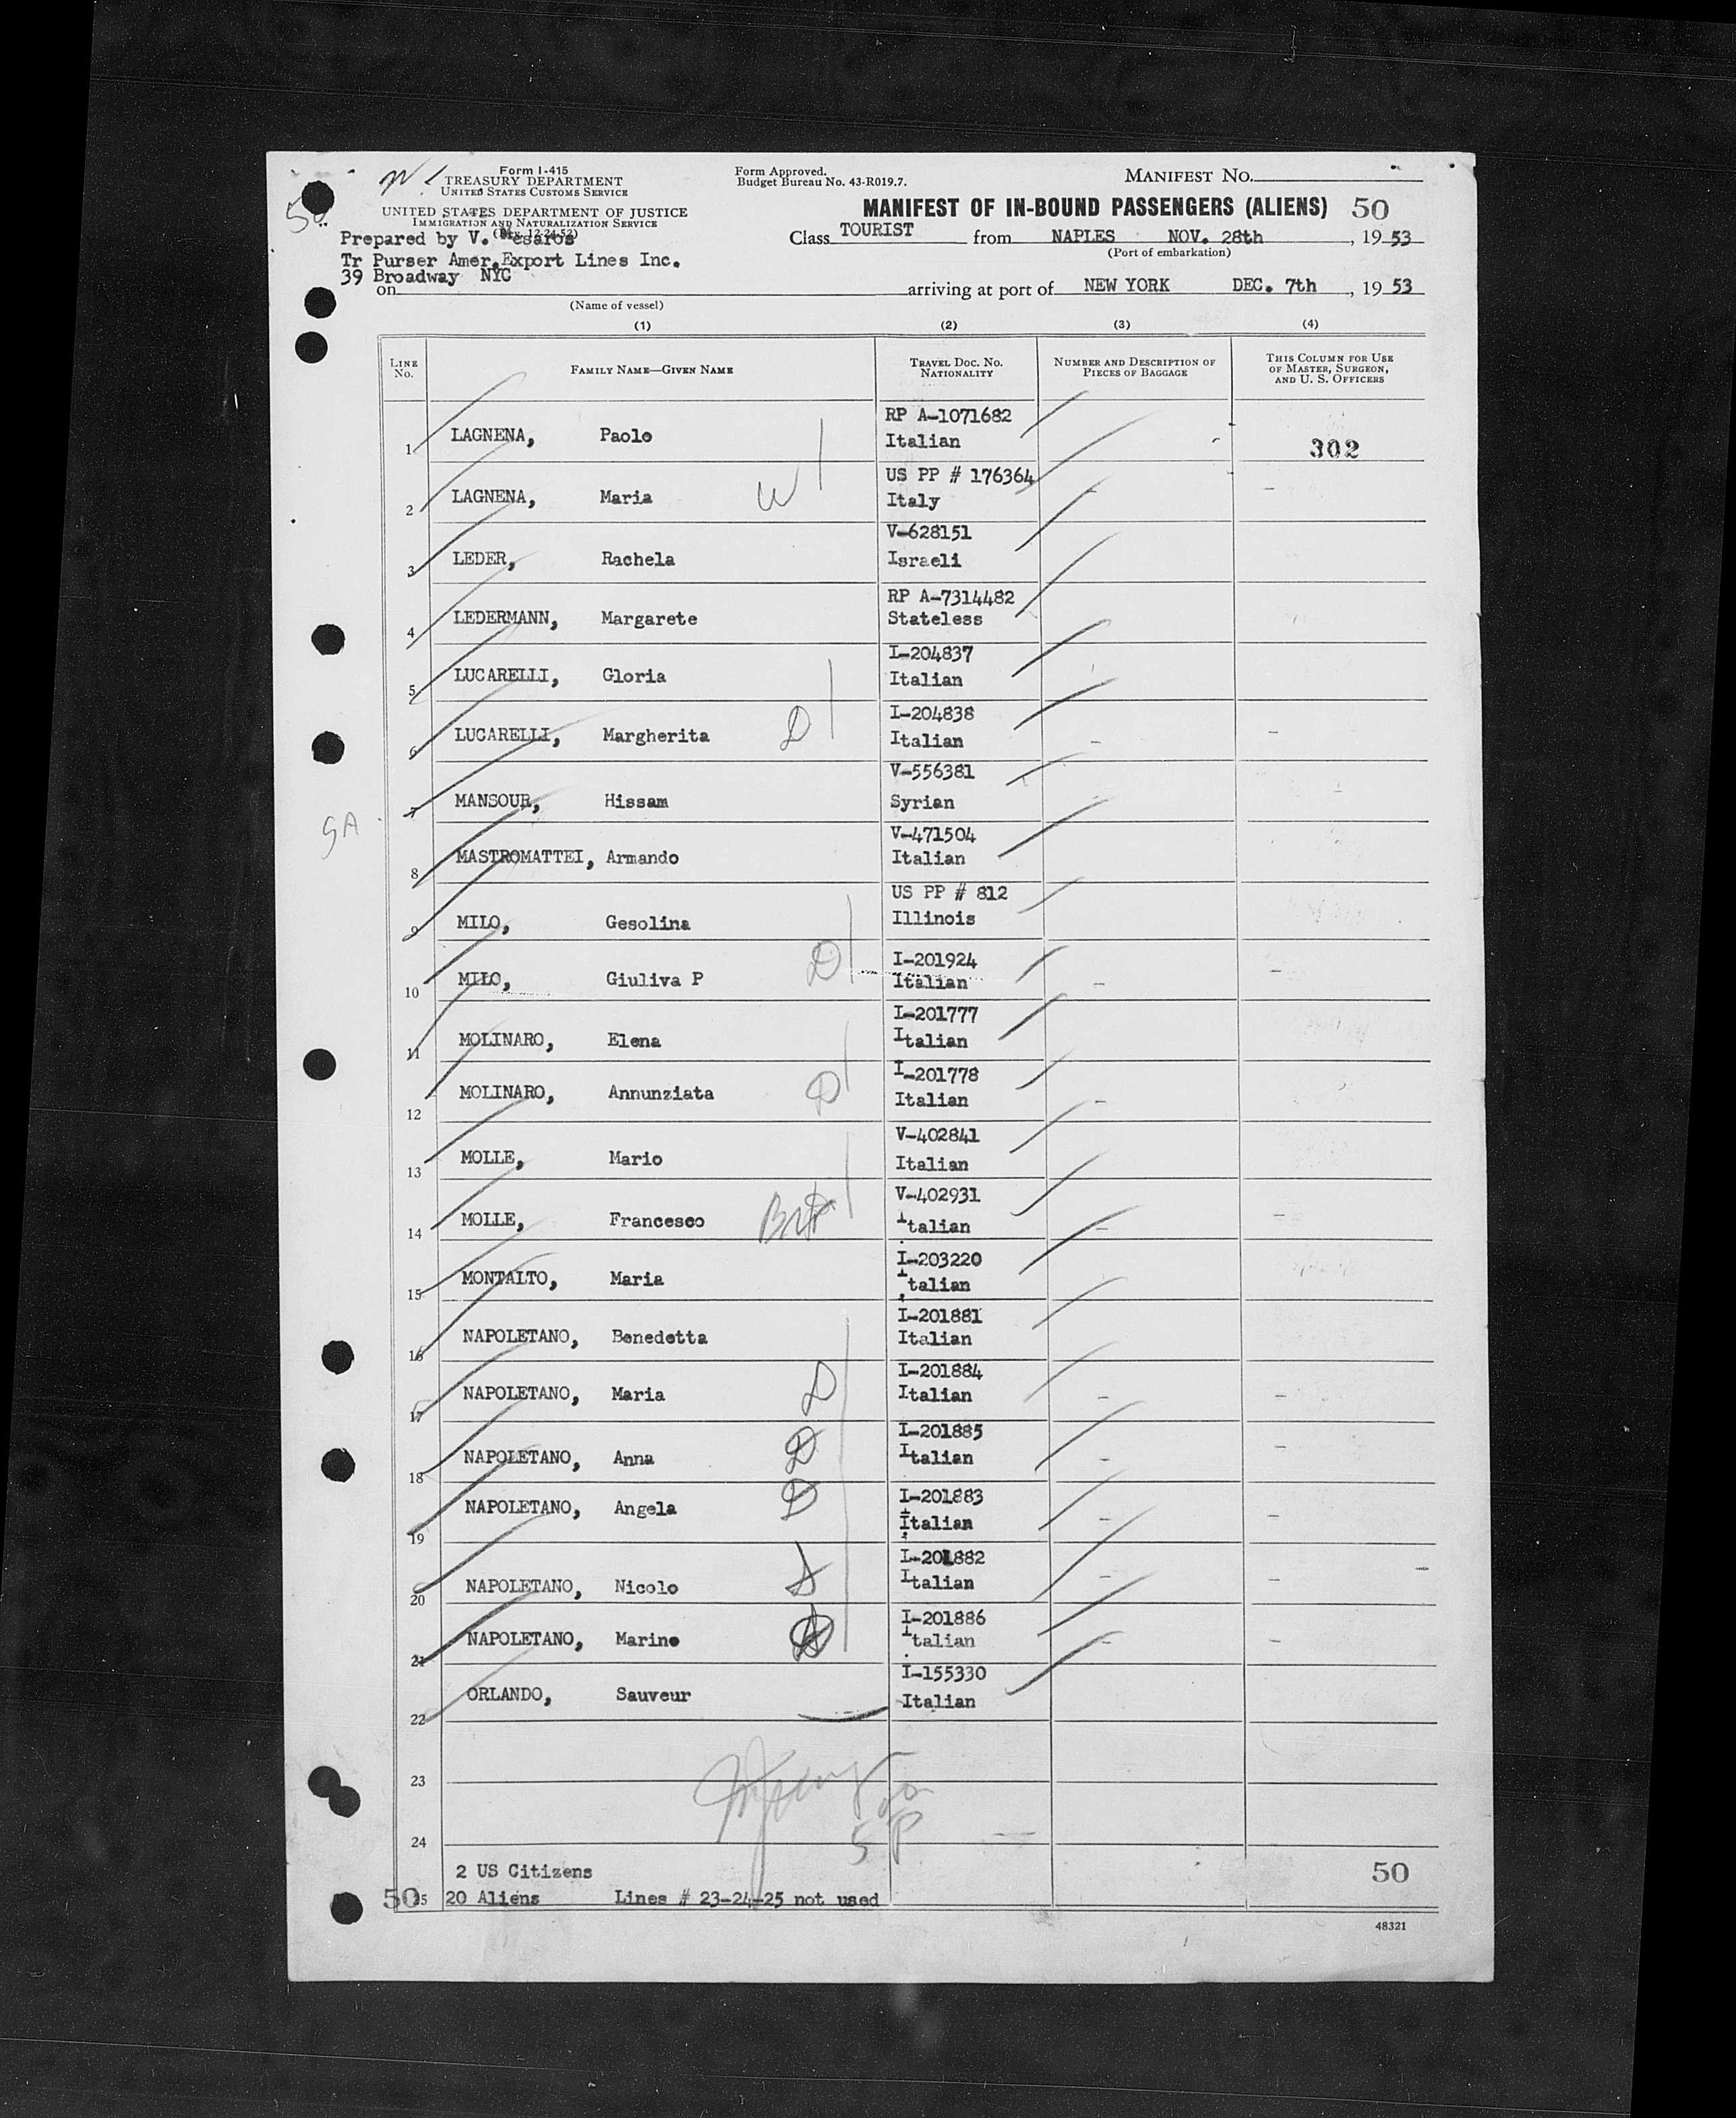 Form I-415
TREASURY DEPARTMENT
UNITED STATES CUSTOMS SERVICE
UNITED STATES DEPARTMENT OF JUSTICE
IMMIGRATION AND NATURALIZATION SERVICE
Form Approved.
Budget Bureau No. 43-R019.7.
MANIFEST NO.
MANIFEST OF IN-BOUND PASSENGERS (ALIENS) 50
Prepared by V.
Tr Purser Amer.Export Lines Inc.
39 Broadway NYC
Class TOURIST from NAPLES NOV. 28th, 19 53
(Port of embarkation)
on arriving at port of NEW YORK DEC. 7th, 19 53
(Name of vessel)
(1) (2) (3) (4)
LINE NO. FAMILY NAME—GIVEN NAME TRAVEL DOC. NO. NATIONALITY NUMBER AND DESCRIPTION OF PIECES OF BAGGAGE THIS COLUMN FOR USE OF MASTER, SURGEON, AND U. S. OFFICERS
1 LAGNENA, Paolo RP A-1071682 Italian 302
2 LAGNENA, Maria W US PP # 176364 Italy
3 LEDER, Rachela V-628151 Israeli
4 LEDERMANN, Margarete RP A-7314482 Stateless
5 LUCARELLI, Gloria I-204837 Italian
6 LUCARELLI, Margherita D I-204838 Italian
7 MANSOUR, Hissam V-556381 Syrian
SA
8 MASTROMATTEI, Armando V-471504 Italian
9 MILO, Gesolina US PP # 812 Illinois
10 MILO, Giuliva P D I-201924 Italian
11 MOLINARO, Elena I-201777 Italian
12 MOLINARO, Annunziata D I-201778 Italian
13 MOLLE, Mario V-402841 Italian
14 MOLLE, Francesco V-402931 Italian
15 MONTALTO, Maria I-203220 Italian
16 NAPOLETANO, Benedetta I-201881 Italian
17 NAPOLETANO, Maria D I-201884 Italian
18 NAPOLETANO, Anna D I-201885 Italian
19 NAPOLETANO, Angela D I-201883 Italian
20 NAPOLETANO, Nicolo I-201882 Italian
21 NAPOLETANO, Marino I-201886 Italian
22 ORLANDO, Sauveur I-155330 Italian
23
24
5 P
2 US Citizens 50
50 25 20 Aliens Lines # 23-24-25 not used
48321